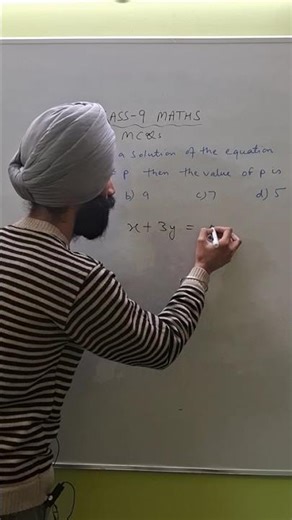 ASS-9 MATHS
MCQs
a solution of the equation
p then the value of p is
b) 9 c) 7 d) 5
x + 3y =